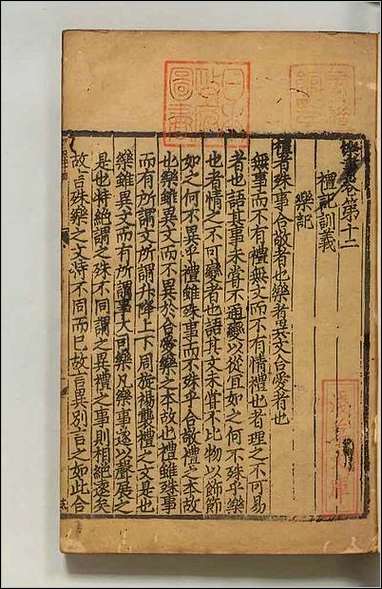 樂書卷第十二
禮記訓義
樂記
禮者殊事合敬者也樂者異文合愛者也
無事而不有禮無文而不有情禮也者理之不可易
者也語其事未嘗不通變以從宜如之何不殊乎樂
也者情之不可變者也語其文未嘗不比物以飾節
如之何不異乎禮雖殊事而不殊乎合敬禮之本故
也樂雖異文而不異於合愛樂之本故也禮雖殊事
而有所謂文所謂升降上下周旋裼襲禮之文是也
樂雖異文而有所謂事大司樂凡樂事遂以聲展之
是也特絶謂之殊不同謂之異禮之事則相絶逺矣
故言殊樂之文特不同而已故言異別言之如此合